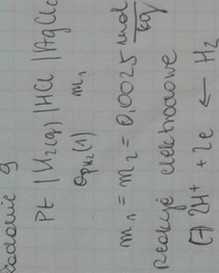 zadanie 9
Pt | H₂(g) | HCl | AgCl(s)
m₁
m₁ = m₂ = 0,0025 mol/kg
Reakcje elektrodowe
(-) 2H⁺ + 2e ← H₂